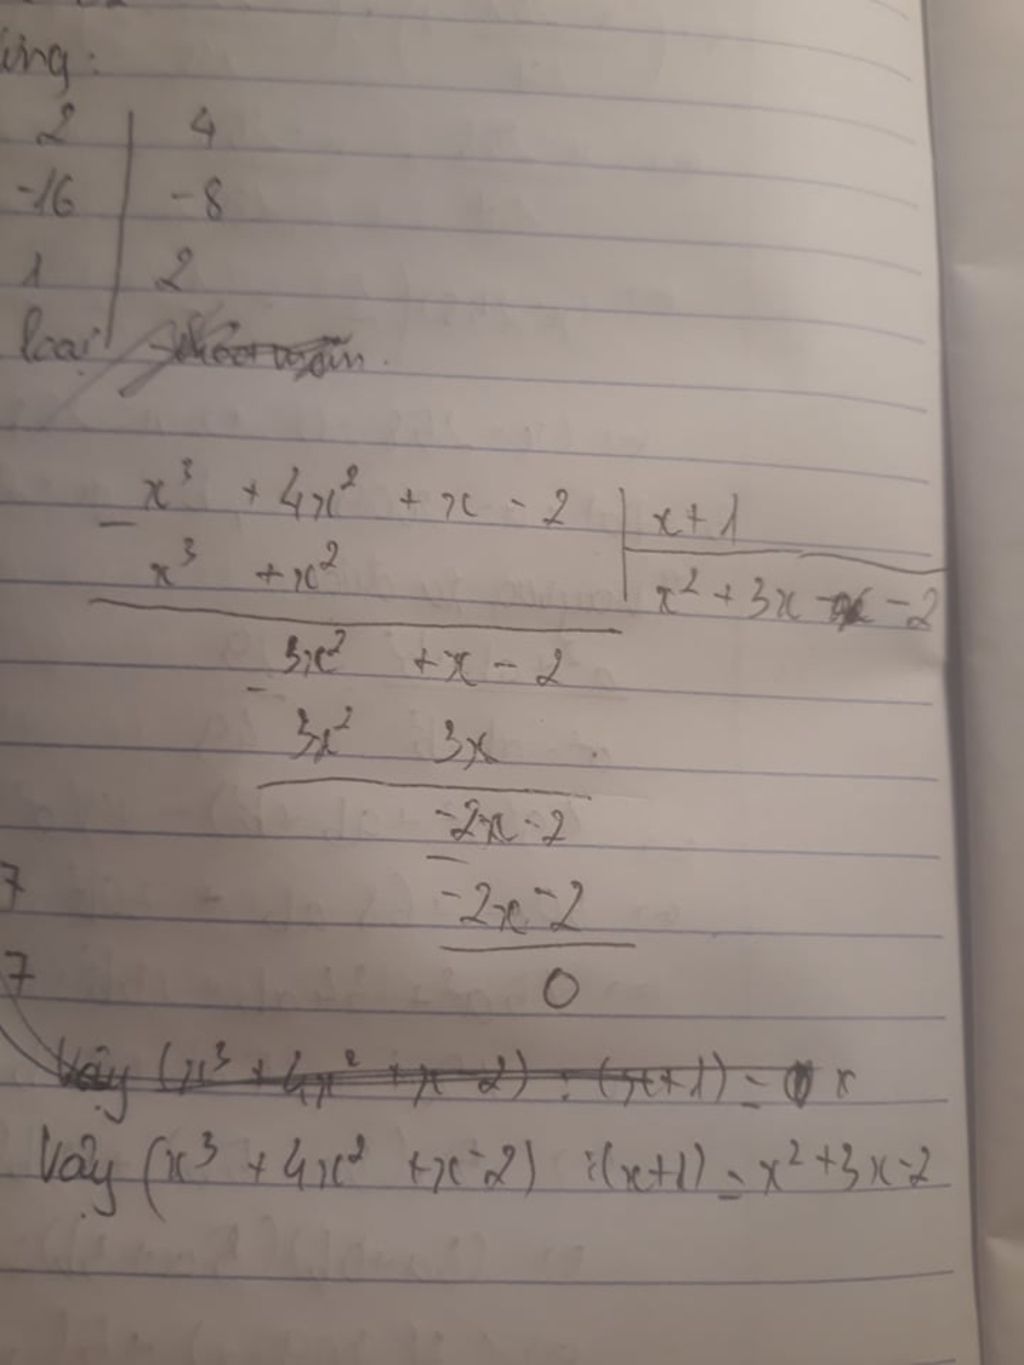 ứng:
2 | 4
-16 | -8
1 | 2
loại
x³ + 4x² + x - 2 | x + 1
-
x³ + x² | x² + 3x - 2
3x² + x - 2
-
3x² 3x
-2x - 2
-
7
-2x - 2
7
0
Vậy (x³ + 4x² + x - 2) : (x + 1) = x
Vậy (x³ + 4x² + x - 2) : (x + 1) = x² + 3x - 2